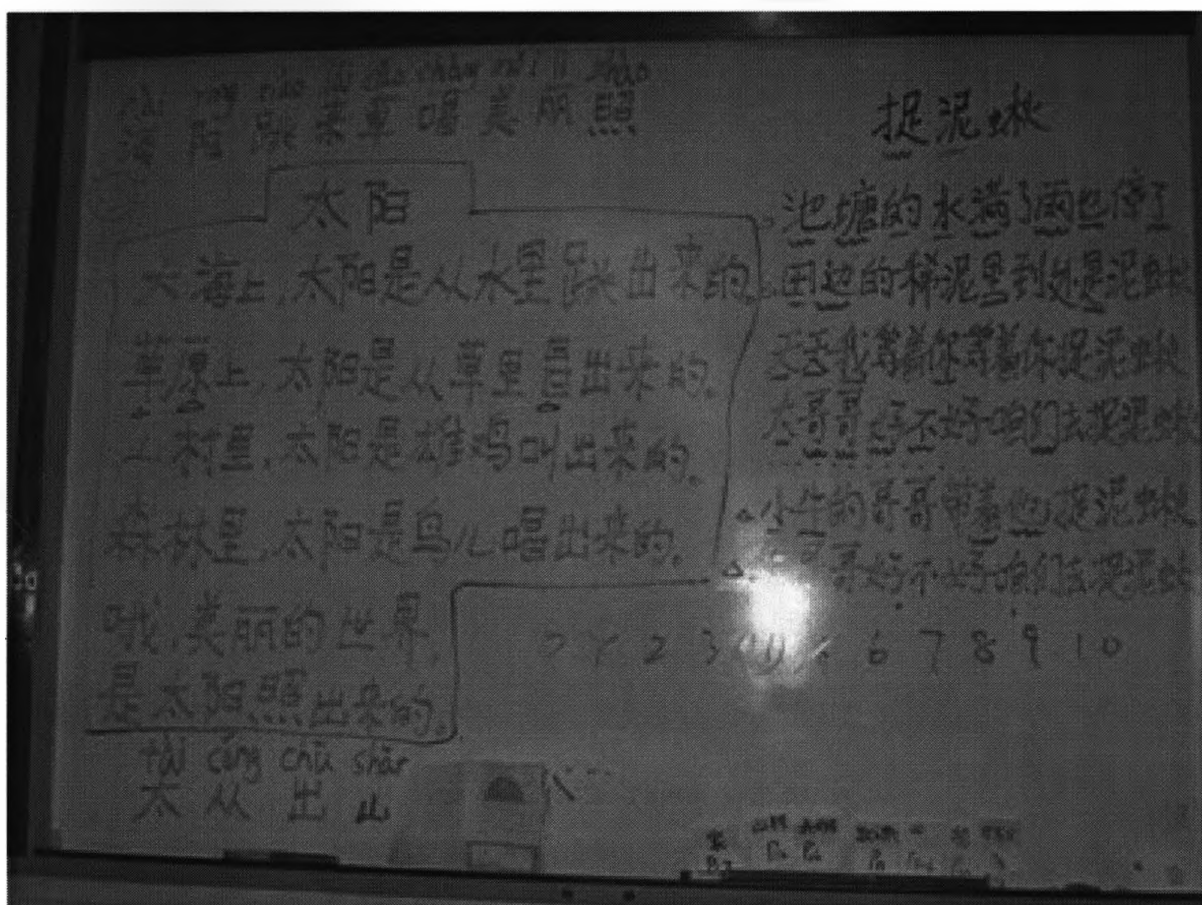 阳 跳 草 唱 美 丽 照
太阳
大海上,太阳是从水里跳出来的。
草原上,太阳是从草里冒出来的。
山村里,太阳是雄鸡叫出来的。
森林里,太阳是鸟儿唱出来的。
哦,美丽的世界,
是太阳照出来的。
tài cóng chū shān
太 从 出 山
捉泥鳅
池塘的水满了雨也停了
田边的稀泥里到处是泥鳅
天天我等着你等着你捉泥鳅
大哥哥好不好咱们去捉泥鳅
小牛的哥哥带着他捉泥鳅
大哥哥好不好咱们去捉泥鳅
2 3 6 7 8 9 10